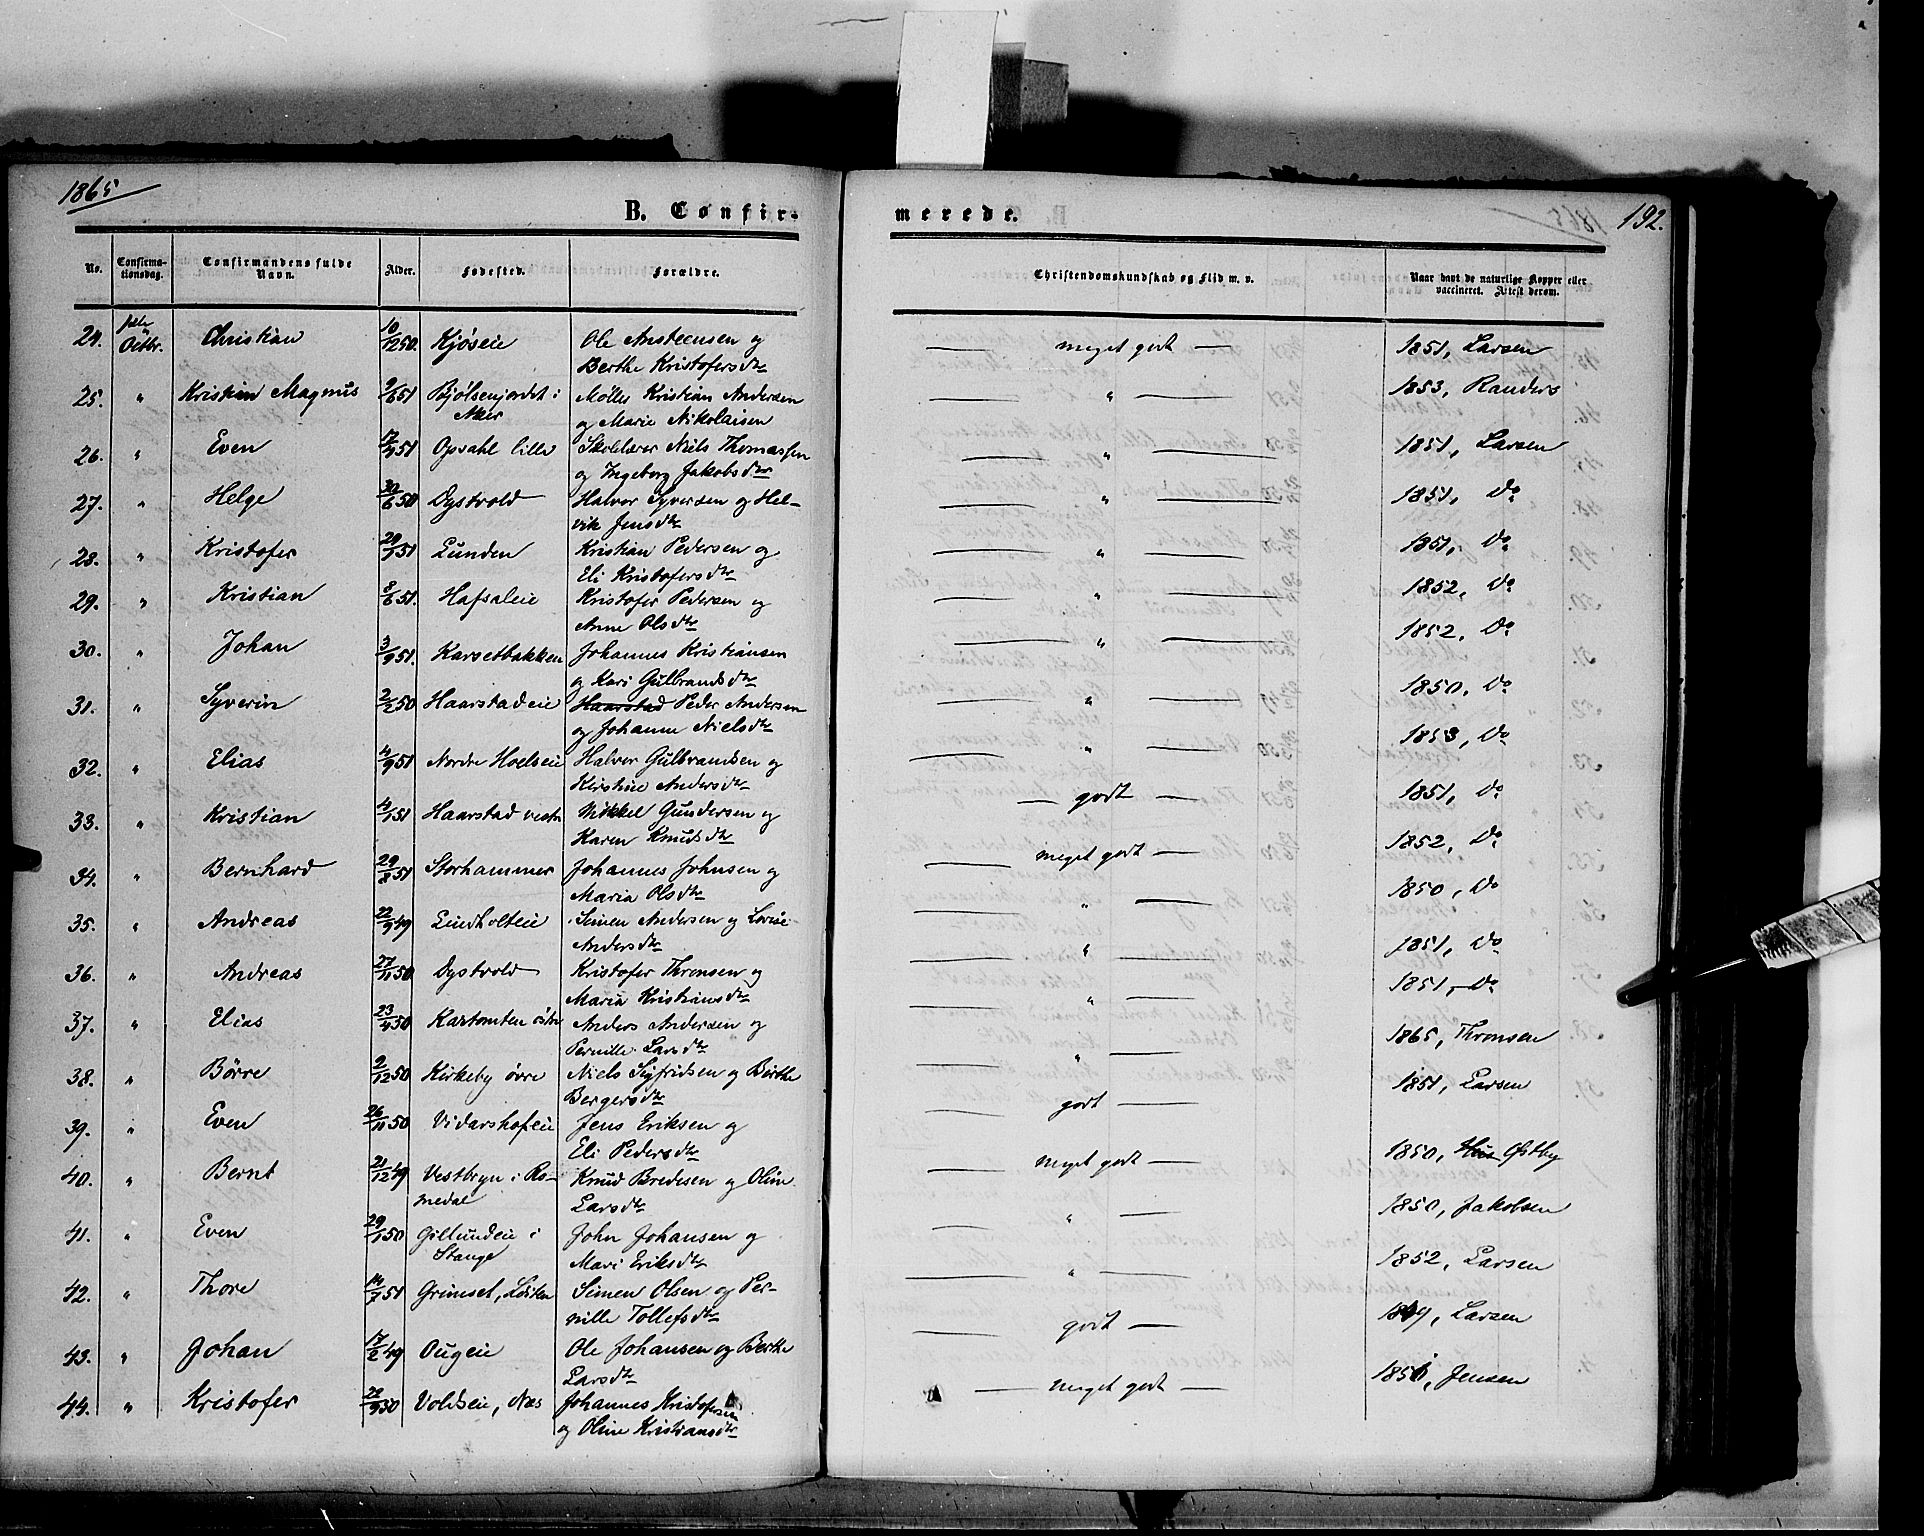 1865
B. Confir-
merede.
192.
No.
Confirma-
tionsdag.
Confirmandens fulde
Navn.
Alder.
Fødested.
Forældre.
Christendomskundskab og Flid m. v.
Naar havt de naturlige Kopper eller
vaccineret. Attest derom.
24. 1ste Octbr. Christian 10/12 50. Kjøseie Ole Amsteensen og — meget godt — 1851, Larsen
Berthe Kristofersdtr
25. " Kristian Magnus 9/6 51 Bjølsenjordet i Møller Kristian Andersen — " — 1853, Randers
Aker og Marie Nikolaisen
26. " Even 17/4 51 Opsahl lille Skolelærer Niels Thomassen — " — 1851, Larsen
og Ingeborg Jakobsdtr
27. " Helge 30/6 50 Dystvold Halvor Syversen og Hel- — " — 1851, Do
vik Jensdtr
28. " Kristofer 29/1 51 Lunden Kristian Pedersen og — " — 1851, Do
Eli Kristofersdtr
29. " Kristian 8/6 51. Hafsaleie Kristofer Pedersen og — " — 1852, Do
Anne Olsdtr
30. " Johan 3/9 51. Karsetbakken Johannes Kristiansen — " — 1852, Do
og Kari Gulbrandsdtr
31. " Syverin 2/2 50 Haarstadeie Haarstad Peder Andersen — " — 1850, Do
og Johanne Nielsdtr
32. " Elias 4/9 51 Nordre Hoelseie Halvor Gulbrandsen og — " — 1853, Do
Kirstine Andersdtr
33. " Kristian 4/1 51 Haarstad vestre Mikkel Gundersen og — godt — 1851, Do
Karen Knudsdtr
34. " Bernhard 29/8 51 Storhammer Johannes Johnsen og — meget godt — 1852, Do
Maria Olsdtr
35. " Andreas 22/9 49 Lindholteie Simen Andersen og Lovise — " — 1850, Do
Andersdtr
36. " Andreas 27/11 50 Dystvold Kristofer Thronsen og — " — 1851, Do
Maria Kristiansdtr
37. " Elias 23/4 50 Kastomten østre Anders Andersen og — " — 1851, Do
Pernille Larsdtr
38. " Børre 2/12 50 Kirkeby øvre Niels Sigfridsen og Berthe — " — 1865, Thronsen
Bergersdtr
39. " Even 26/11 50 Vidarshofeie Jens Eriksen og — godt — 1851, Larsen
Eli Pedersdtr
40. " Bernt 21/12 49 Vestbyn i Ro- Knud Bredesen og Oline — meget godt — 1850, Østby
medal Larsdtr
41. " Even 29/1 50 Gillundeie i John Johansen og — " — 1850, Jakobsen
Stange Mari Eriksdtr
42. " Thore 14/7 51 Grimset, Løiten Simen Olsen og Per- — " — 1852, Larsen
nille Tollefsdtr
43. " Johan 17/2 49 Ougeie Ole Johansen og Berthe — godt — 1849, Larsen
Larsdtr
44. " Kristofer 22/9 50 Voldseie, Næs Johannes Kristofersen — meget godt — 1851, Jensen
og Oline Kristiansdtr